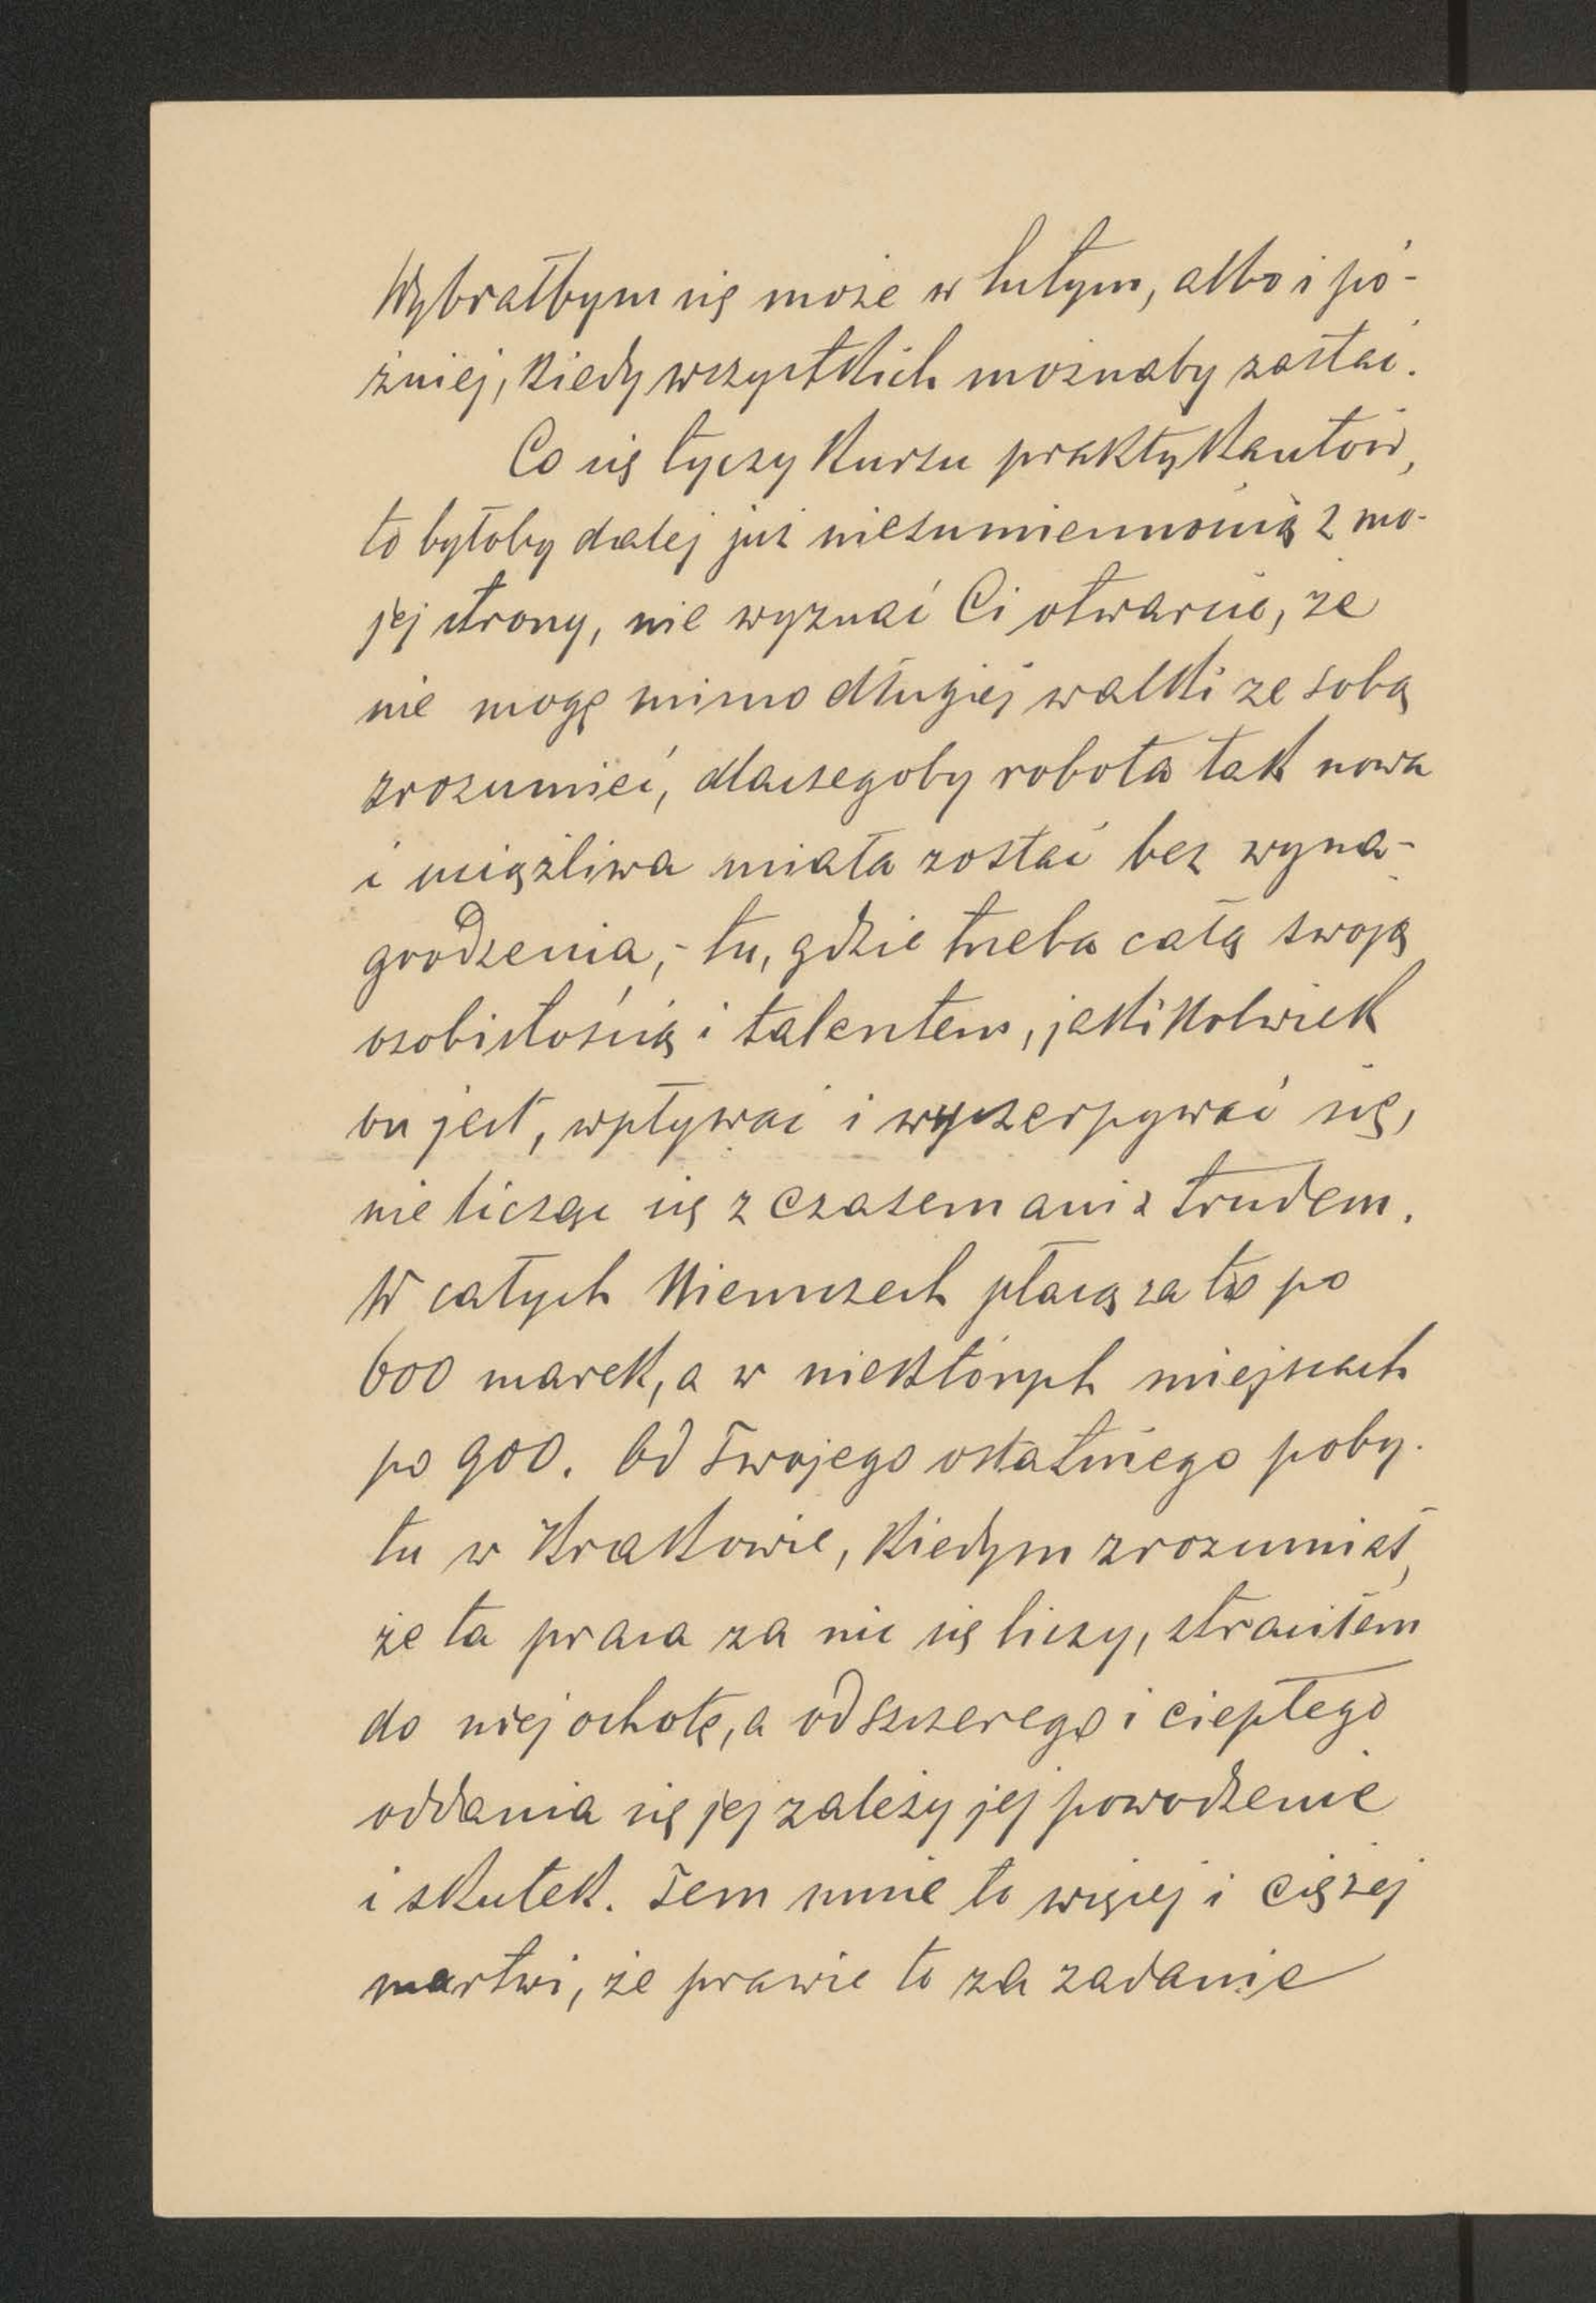 Wybrałbym się może w lutym, albo i pó-
źniej, kiedy wszystkich możnaby zastać.
Co się tyczy kursu praktykantów,
to byłoby dalej już niesumiennością z mo-
jej strony, nie wyznać Ci otwarcie, że
nie mogę mimo długiej walki ze sobą
zrozumieć, dlaczegoby robota tak nowa
i uciążliwa miała zostać bez wyna-
grodzenia, - tu, gdzie trzeba całą swoją
osobistością i talentem, jakikolwiek
on jest, wpływać i wyczerpywać się,
nie licząc się z czasem ani z trudem.
W całych Niemczech płacą za to po
600 marek, a w niektórych miejscach
po 900. Od Twojego ostatniego poby-
tu w Krakowie, kiedym zrozumiał,
że ta praca za nic się liczy, straciłem
do niej ochotę, a od szczerego i ciepłego
oddania się jej zależy jej powodzenie
i skutek. Tem mnie to więcej i ciężej
martwi, że prawie to za zadanie